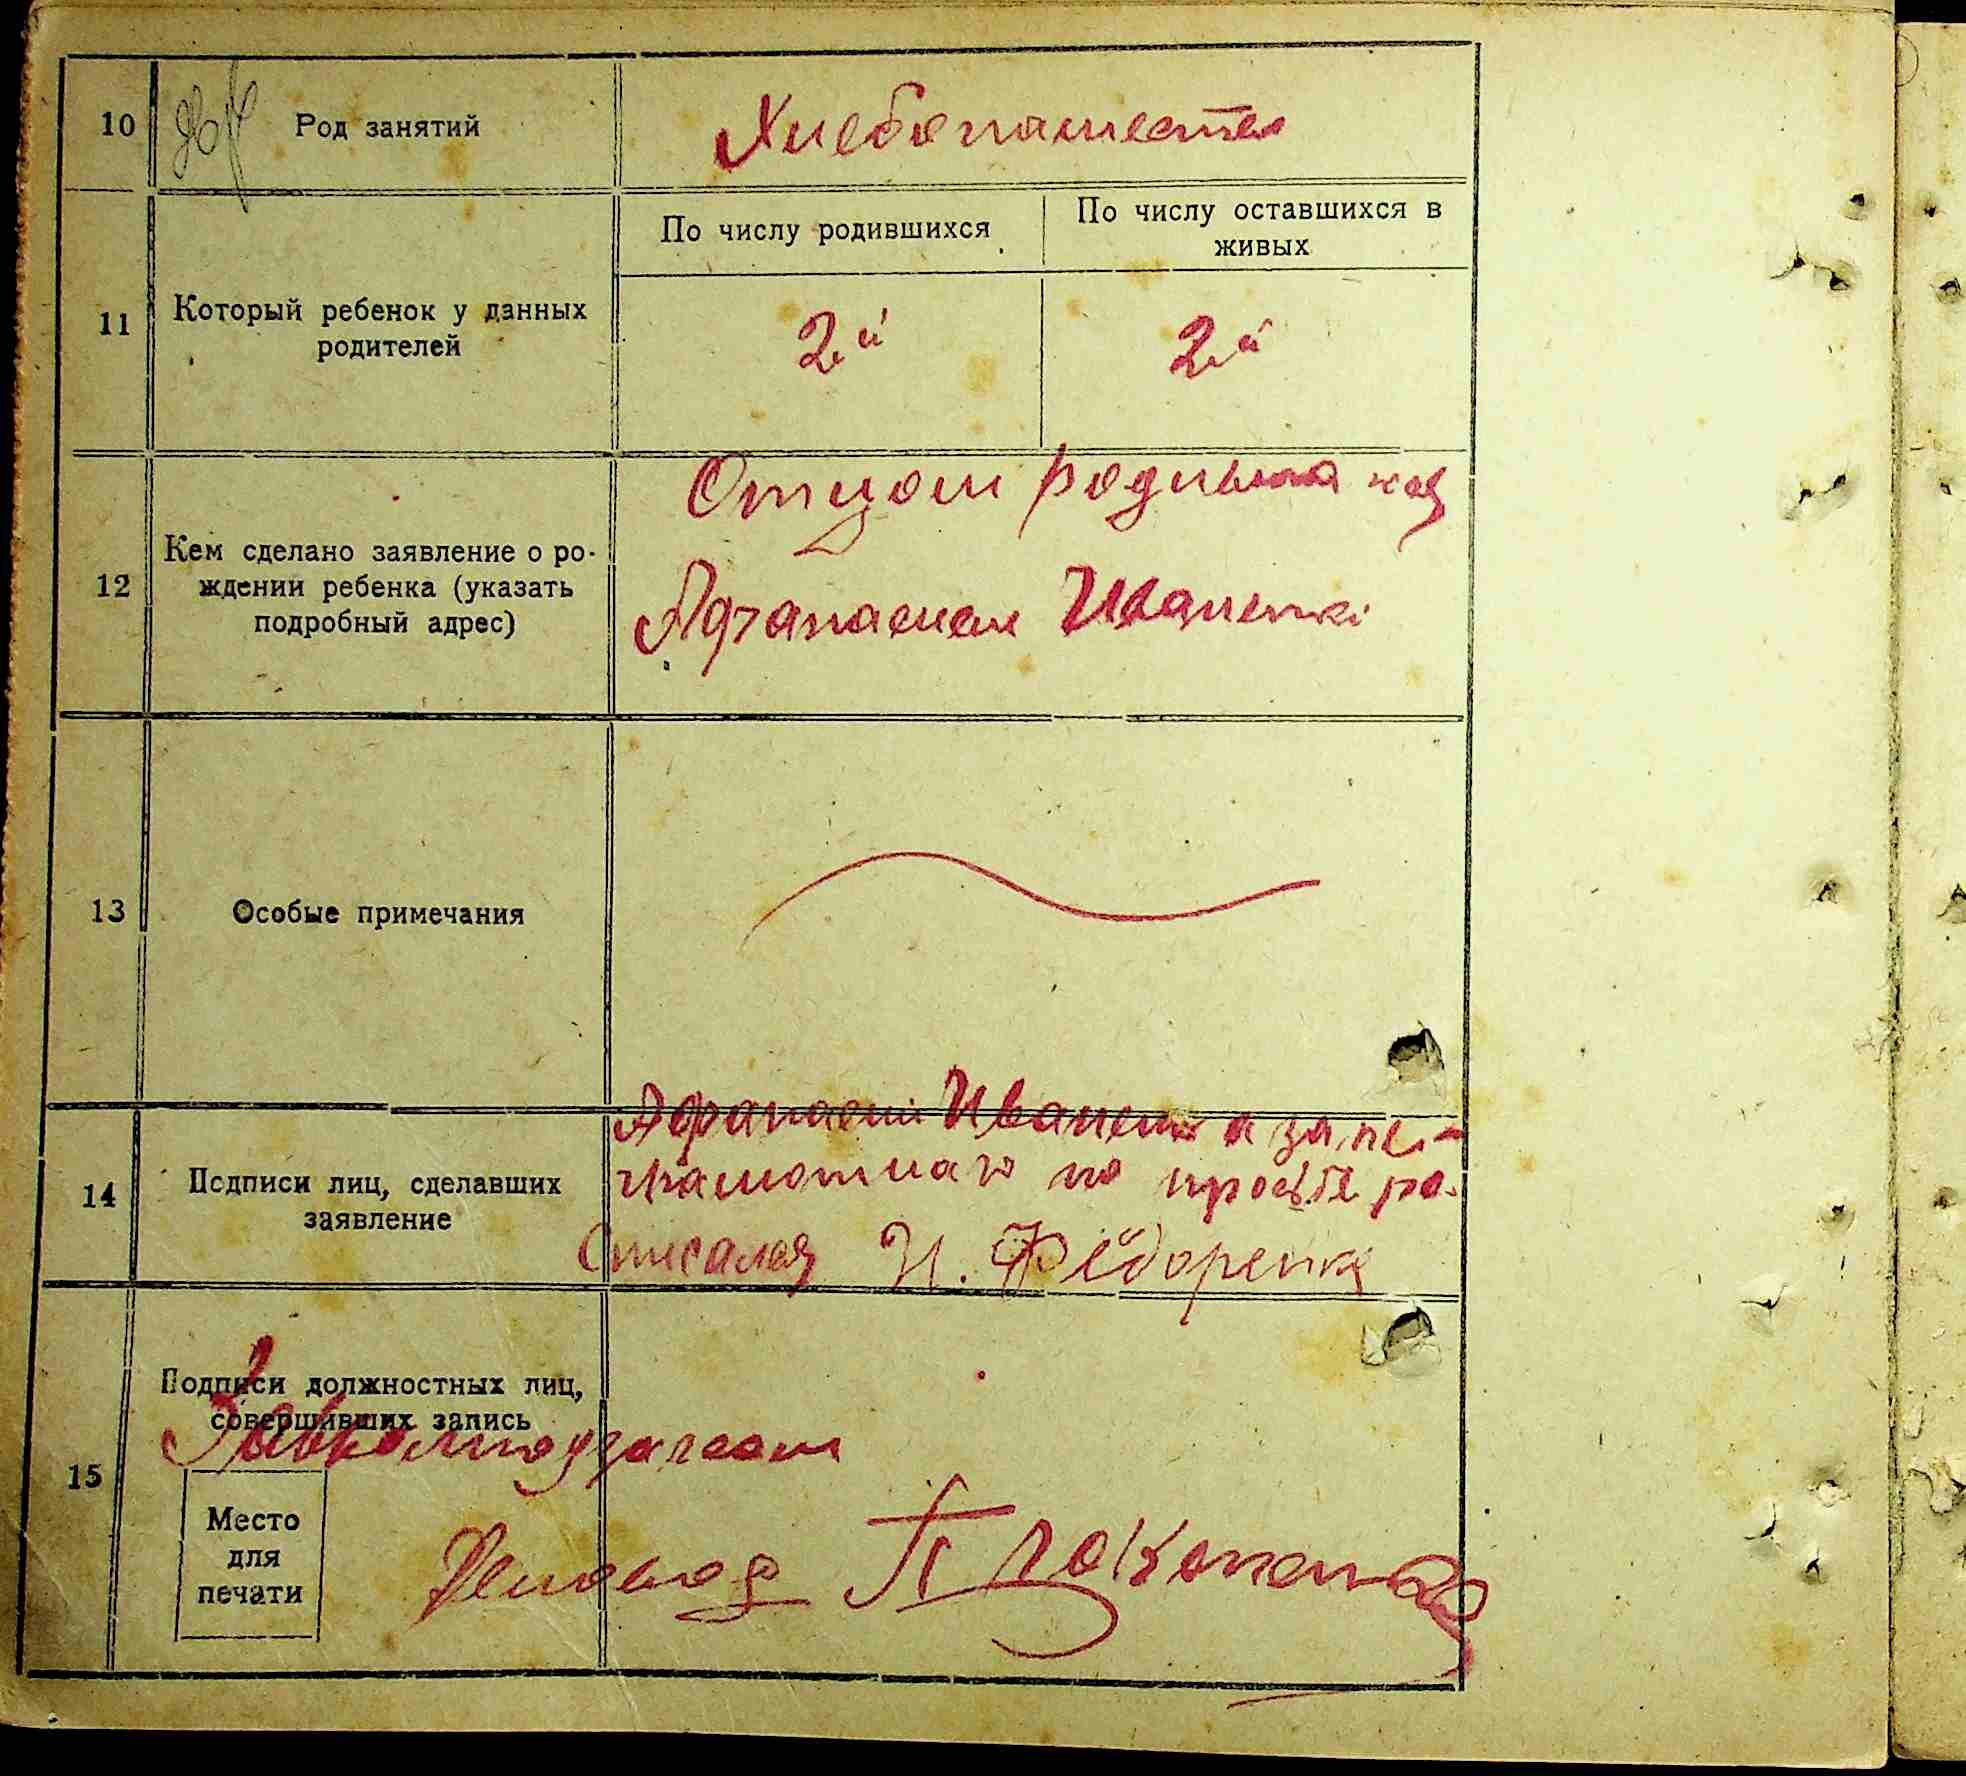 10
Род занятий
Хлебопашество
11
Который ребенок у данных
родителей
По числу родившихся
По числу оставшихся в
живых
2й
2й
12
Кем сделано заявление о ро-
ждении ребенка (указать
подробный адрес)
Отцом
Афанасием Иваненко
13
Особые примечания
14
Подписи лиц, сделавших
заявление
Афанасий Иваненко а за не-
грамотнаго по просьбе ра-
списался И. Фёдоренко
15
Подписи должностных лиц,
совершивших запись
Место
для
печати